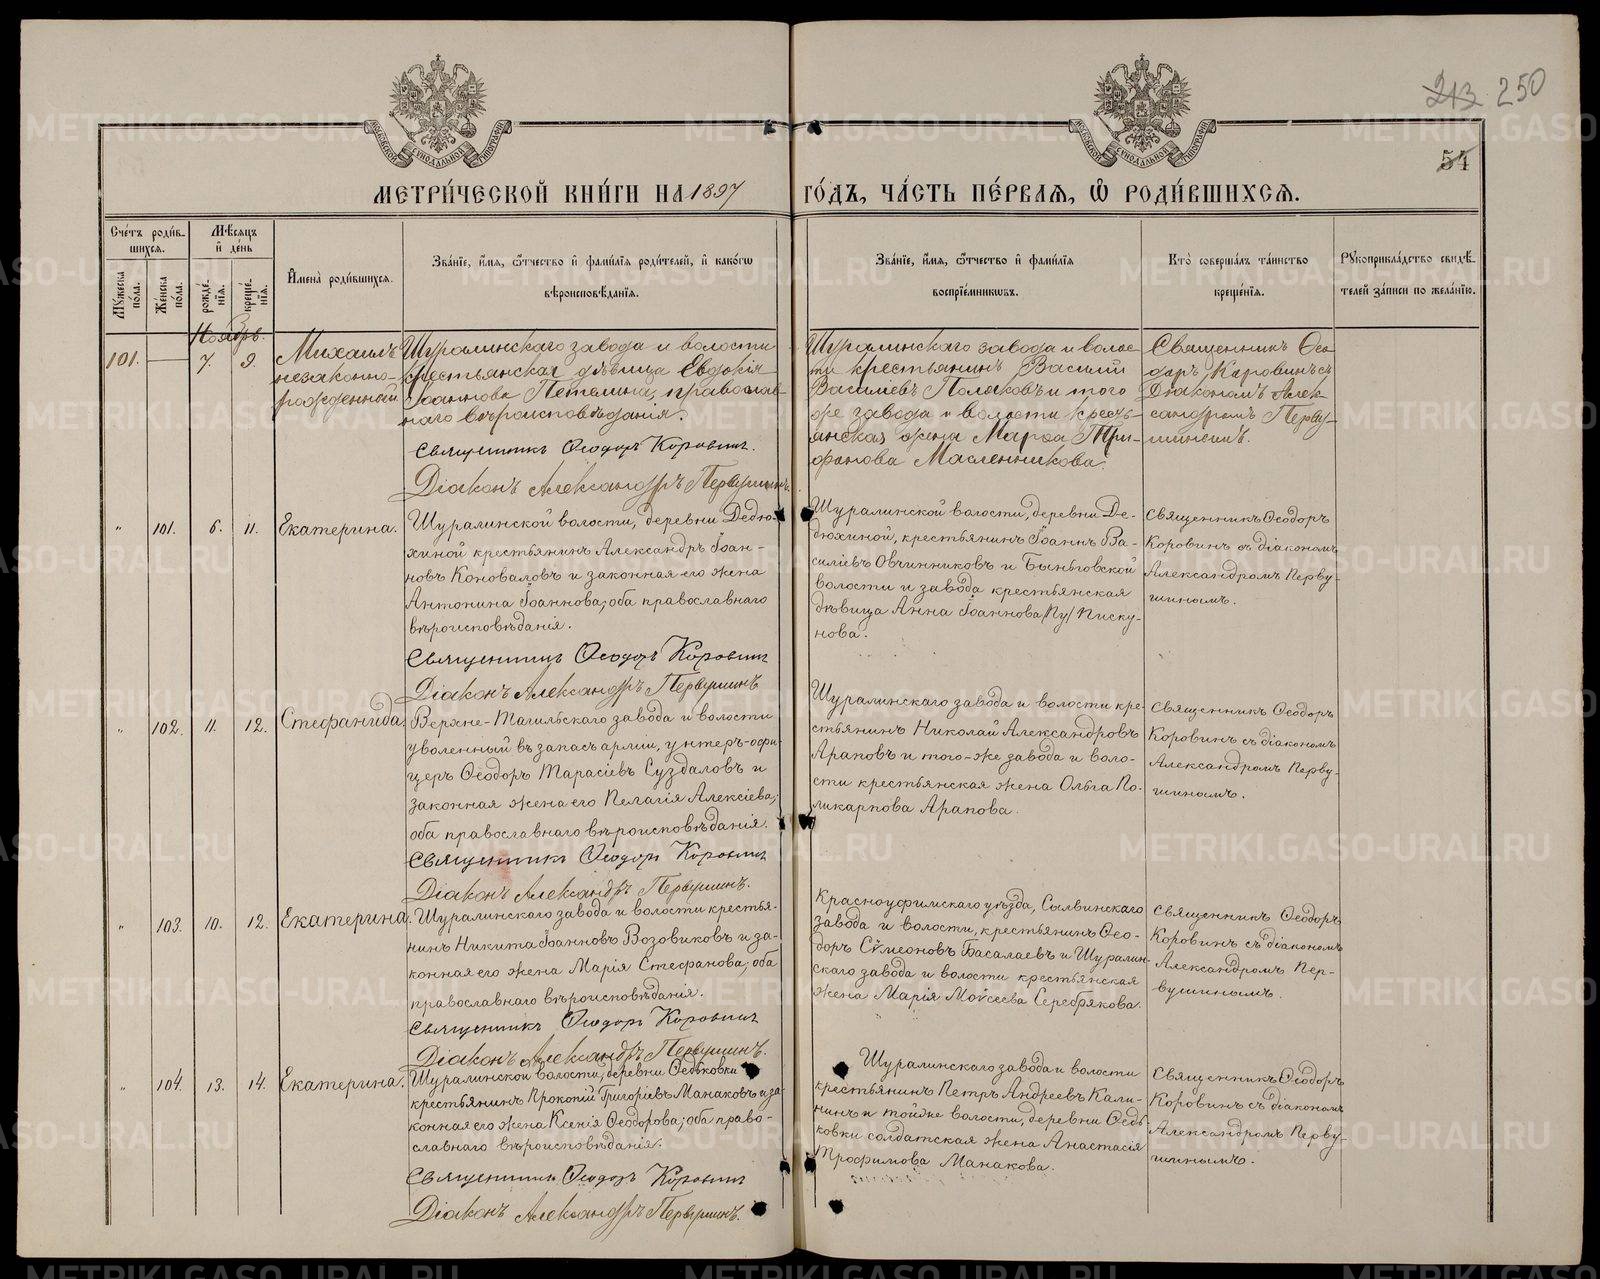 213 250
54
МОСКОВСКОЙ СѴНОДАЛЬНОЙ ТИПОГРАФІИ
МОСКОВСКОЙ СѴНОДАЛЬНОЙ ТИПОГРАФІИ
МЕТРИ́ЧЕСКОЙ КНИ́ГИ НА 1897 ГО́ДЪ, ЧА́СТЬ ПЕ́РВАЯ, Ѽ РОДИ́ВШИХСЯ.
Сче́тъ роди́в-
шихся.
Мꙋ́жеска по́ла.
Же́нска по́ла.
Мѣ́сяцъ
и҆ де́нь
рожде́-
нїѧ.
креще́-
нїѧ.
И҆мена̀ роди́вшихся.
Зва́нїе, и҆́мѧ, ѻ҆́тчество и҆ фами́лїѧ роди́телей, и҆ како́гѡ
вѣроисповѣ́данїѧ.
Зва́нїе, и҆́мѧ, ѻ҆́тчество и҆ фами́лїѧ
воспрїе́мникѡвъ.
Кто̀ соверша́лъ та́инство
креще́нїѧ.
Рꙋкоприкла́дство свидѣ́-
телей за́писи по жела́нїю.
Ноябрь.
101. — 7. 9.
Михаилъ
незаконно-
рожденный
Шуралинскаго завода и волости
крестьянская дѣвица Евдокія
Іоаннова Петелина, православ-
наго вѣроисповѣданія.
Священникъ Ѳеодоръ Коровинъ.
Діаконъ Александръ Первушинъ.
Шуралинскаго завода и волос-
ти крестьянинъ Василій
Василіевъ Поляковъ и того
же завода и волости кресть-
янская жена Марѳа Три-
фонова Масленникова.
Священникъ Ѳео-
доръ Коровинъ съ
Діакономъ Алек-
сандромъ Перву-
шинымъ.
" 101. 6. 11. Екатерина.
Шуралинской волости, деревни Дедю-
хиной крестьянинъ Александръ Іоан-
новъ Коноваловъ и законная его жена
Антонина Іоаннова; оба православнаго
вѣроисповѣданія.
Священникъ Ѳеодоръ Коровинъ
Діаконъ Александръ Первушинъ
Шуралинской волости, деревни Де-
дюхиной, крестьянинъ Іоаннъ Ва-
силіевъ Овчинниковъ и Быньговской
волости и завода крестьянская
дѣвица Анна Іоаннова /Пу/ Писку-
нова.
Священникъ Ѳеодоръ
Коровинъ съ діакономъ
Александромъ Перву-
шинымъ.
" 102. 11. 12. Стефанида.
Верхне-Тагильскаго завода и волости
уволенный въ запасъ арміи, унтеръ-офи-
церъ Ѳеодоръ Тарасіевъ Суздаловъ и
законная жена его Пелагія Алексіева;
оба православнаго вѣроисповѣданія.
Священникъ Ѳеодоръ Коровинъ
Діаконъ Александръ Первушинъ.
Шуралинскаго завода и волости кре-
стьянинъ Николай Александровъ
Араповъ и того-же завода и воло-
сти крестьянская жена Ольга По-
ликарпова Арапова.
Священникъ Ѳеодоръ
Коровинъ съ діакономъ
Александромъ Перву-
шинымъ.
" 103. 10. 12. Екатерина.
Шуралинскаго завода и волости крестья-
нинъ Никита Іоанновъ Возовиковъ и за-
конная его жена Марія Стефанова; оба
православнаго вѣроисповѣданія.
Священникъ Ѳеодоръ Коровинъ
Діаконъ Александръ Первушинъ.
Красноуфимскаго уѣзда, Сылвинскаго
завода и волости, крестьянинъ Ѳео-
доръ Сѵмеоновъ Басалаевъ и Шуралин-
скаго завода и волости крестьянская
жена Марія Моѵсеева Серебрякова.
Священникъ Ѳеодоръ
Коровинъ съ діакономъ
Александромъ Пер-
вушинымъ.
" 104. 13. 14. Екатерина.
Шуралинской волости, деревни Ѳедьковки
крестьянинъ Прокопій Григоріевъ Манаковъ и за-
конная его жена Ксенія Ѳеодорова; оба право-
славнаго вѣроисповѣданія.
Священникъ Ѳеодоръ Коровинъ
Діаконъ Александръ Первушинъ.
Шуралинскаго завода и волости
крестьянинъ Петръ Андреевъ Кали-
нинъ и тойже волости, деревни Ѳедь-
ковки солдатская жена Анастасія
Трофимова Манакова.
Священникъ Ѳеодоръ
Коровинъ съ діакономъ
Александромъ Перву-
шинымъ.
METRIKI.GASO-URAL.RU